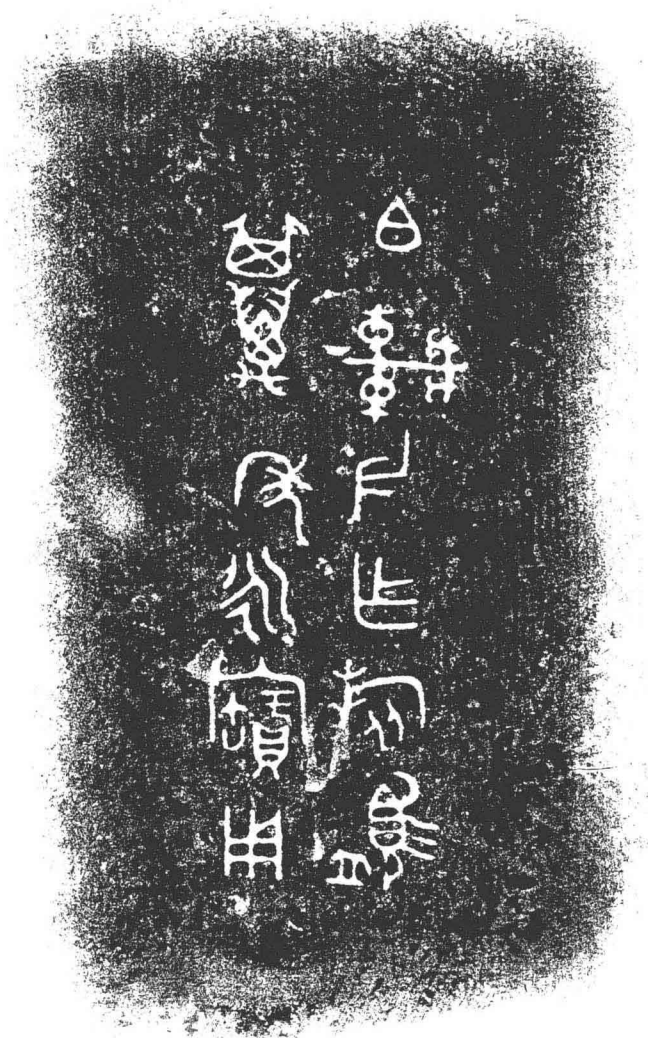 白車父乍旅盨
其萬年永寶用